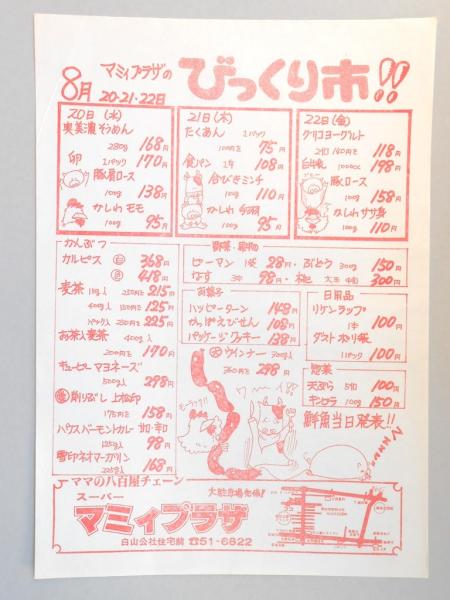 8月 20・21・22日
マミィプラザの
びっくり市!!
20日(水)
奥美濃そうめん
280g 168円
卵 1パック 170円
豚肩ロース
100g 138円
かしわモモ
100g 95円
21日(木)
たくあん 1パック
75円
食パン 108円
合びきミンチ
100g 110円
かしわ 手羽
100g 95円
22日(金)
グリコヨーグルト
118円
牛乳 1000cc 198円
豚ロース
100g 158円
かしわササ身
100g 110円
かんぶつ
カルピス 368円
418円
麦茶 250円を 215円
400g 125円
225円
お茶入麦茶 400g
200円を 170円
キューピーマヨネーズ
500g入 298円
削りぶし 上松印
175円を 158円
ハウスバーモントカレー 甘・辛
125g入 98円
雪印ネオマーガリン
225g入 168円
野菜・果物
ピーマン 1袋 28円・ぶどう 300g 150円
なす 98円・桃 大玉 300円
お菓子
ハッピーターン 148円
かっぱえびせん 108円
パッケージクッキー 138円
ウインナー 300g入
360円を 298円
日用品
リケンラップ
1本 100円
ダストポリ袋
1パック 100円
惣菜
天ぷら 100円
キンピラ 100g 150円
鮮魚当日発表!!
ママの八百屋チェーン
スーパー
マミィプラザ
白山公社住宅前 ☎51-6822
大駐車場完備!